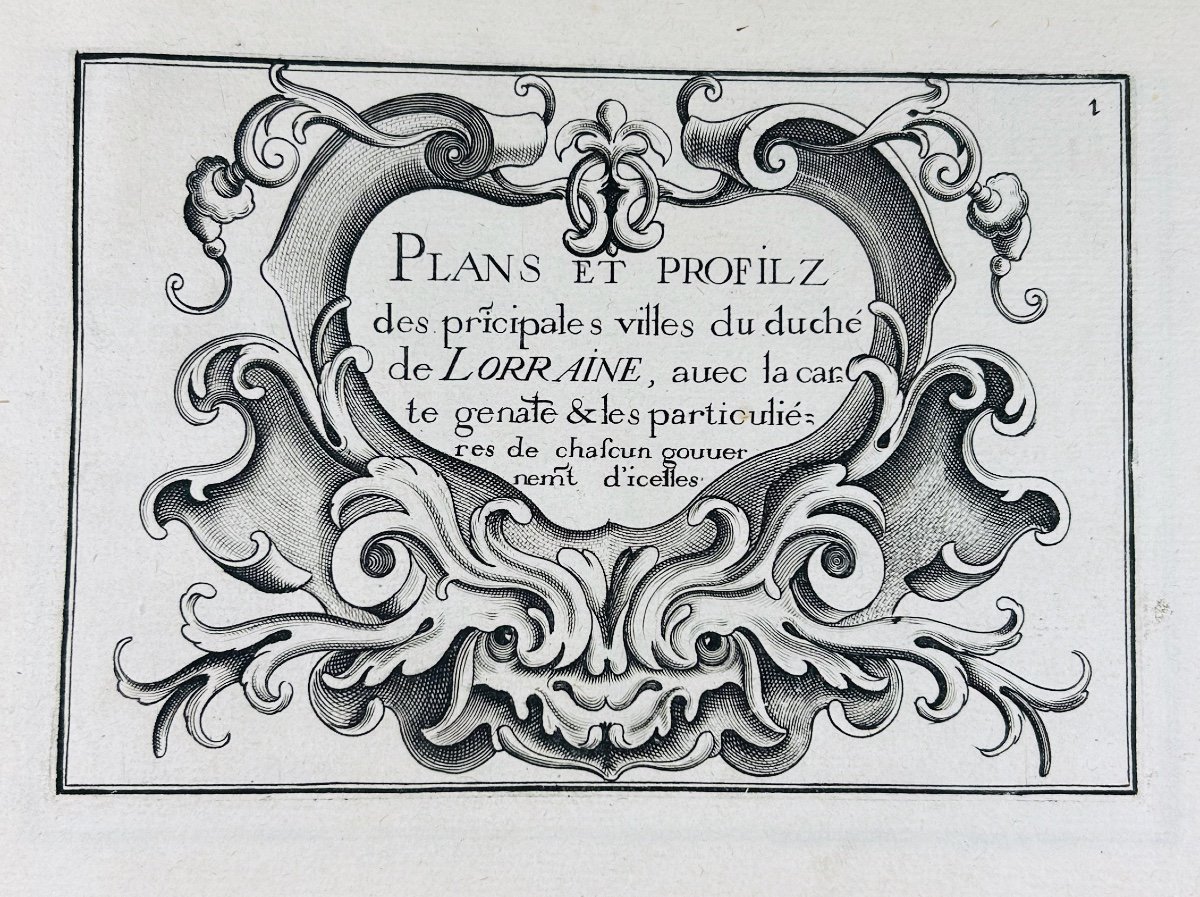 1
PLANS ET PROFILZ
des pr̃icipales villes du duché
de LORRAINE, auec la car=
te genãle & les particulié=
res de chaſcun gouuer
nem̃t d'icelles.